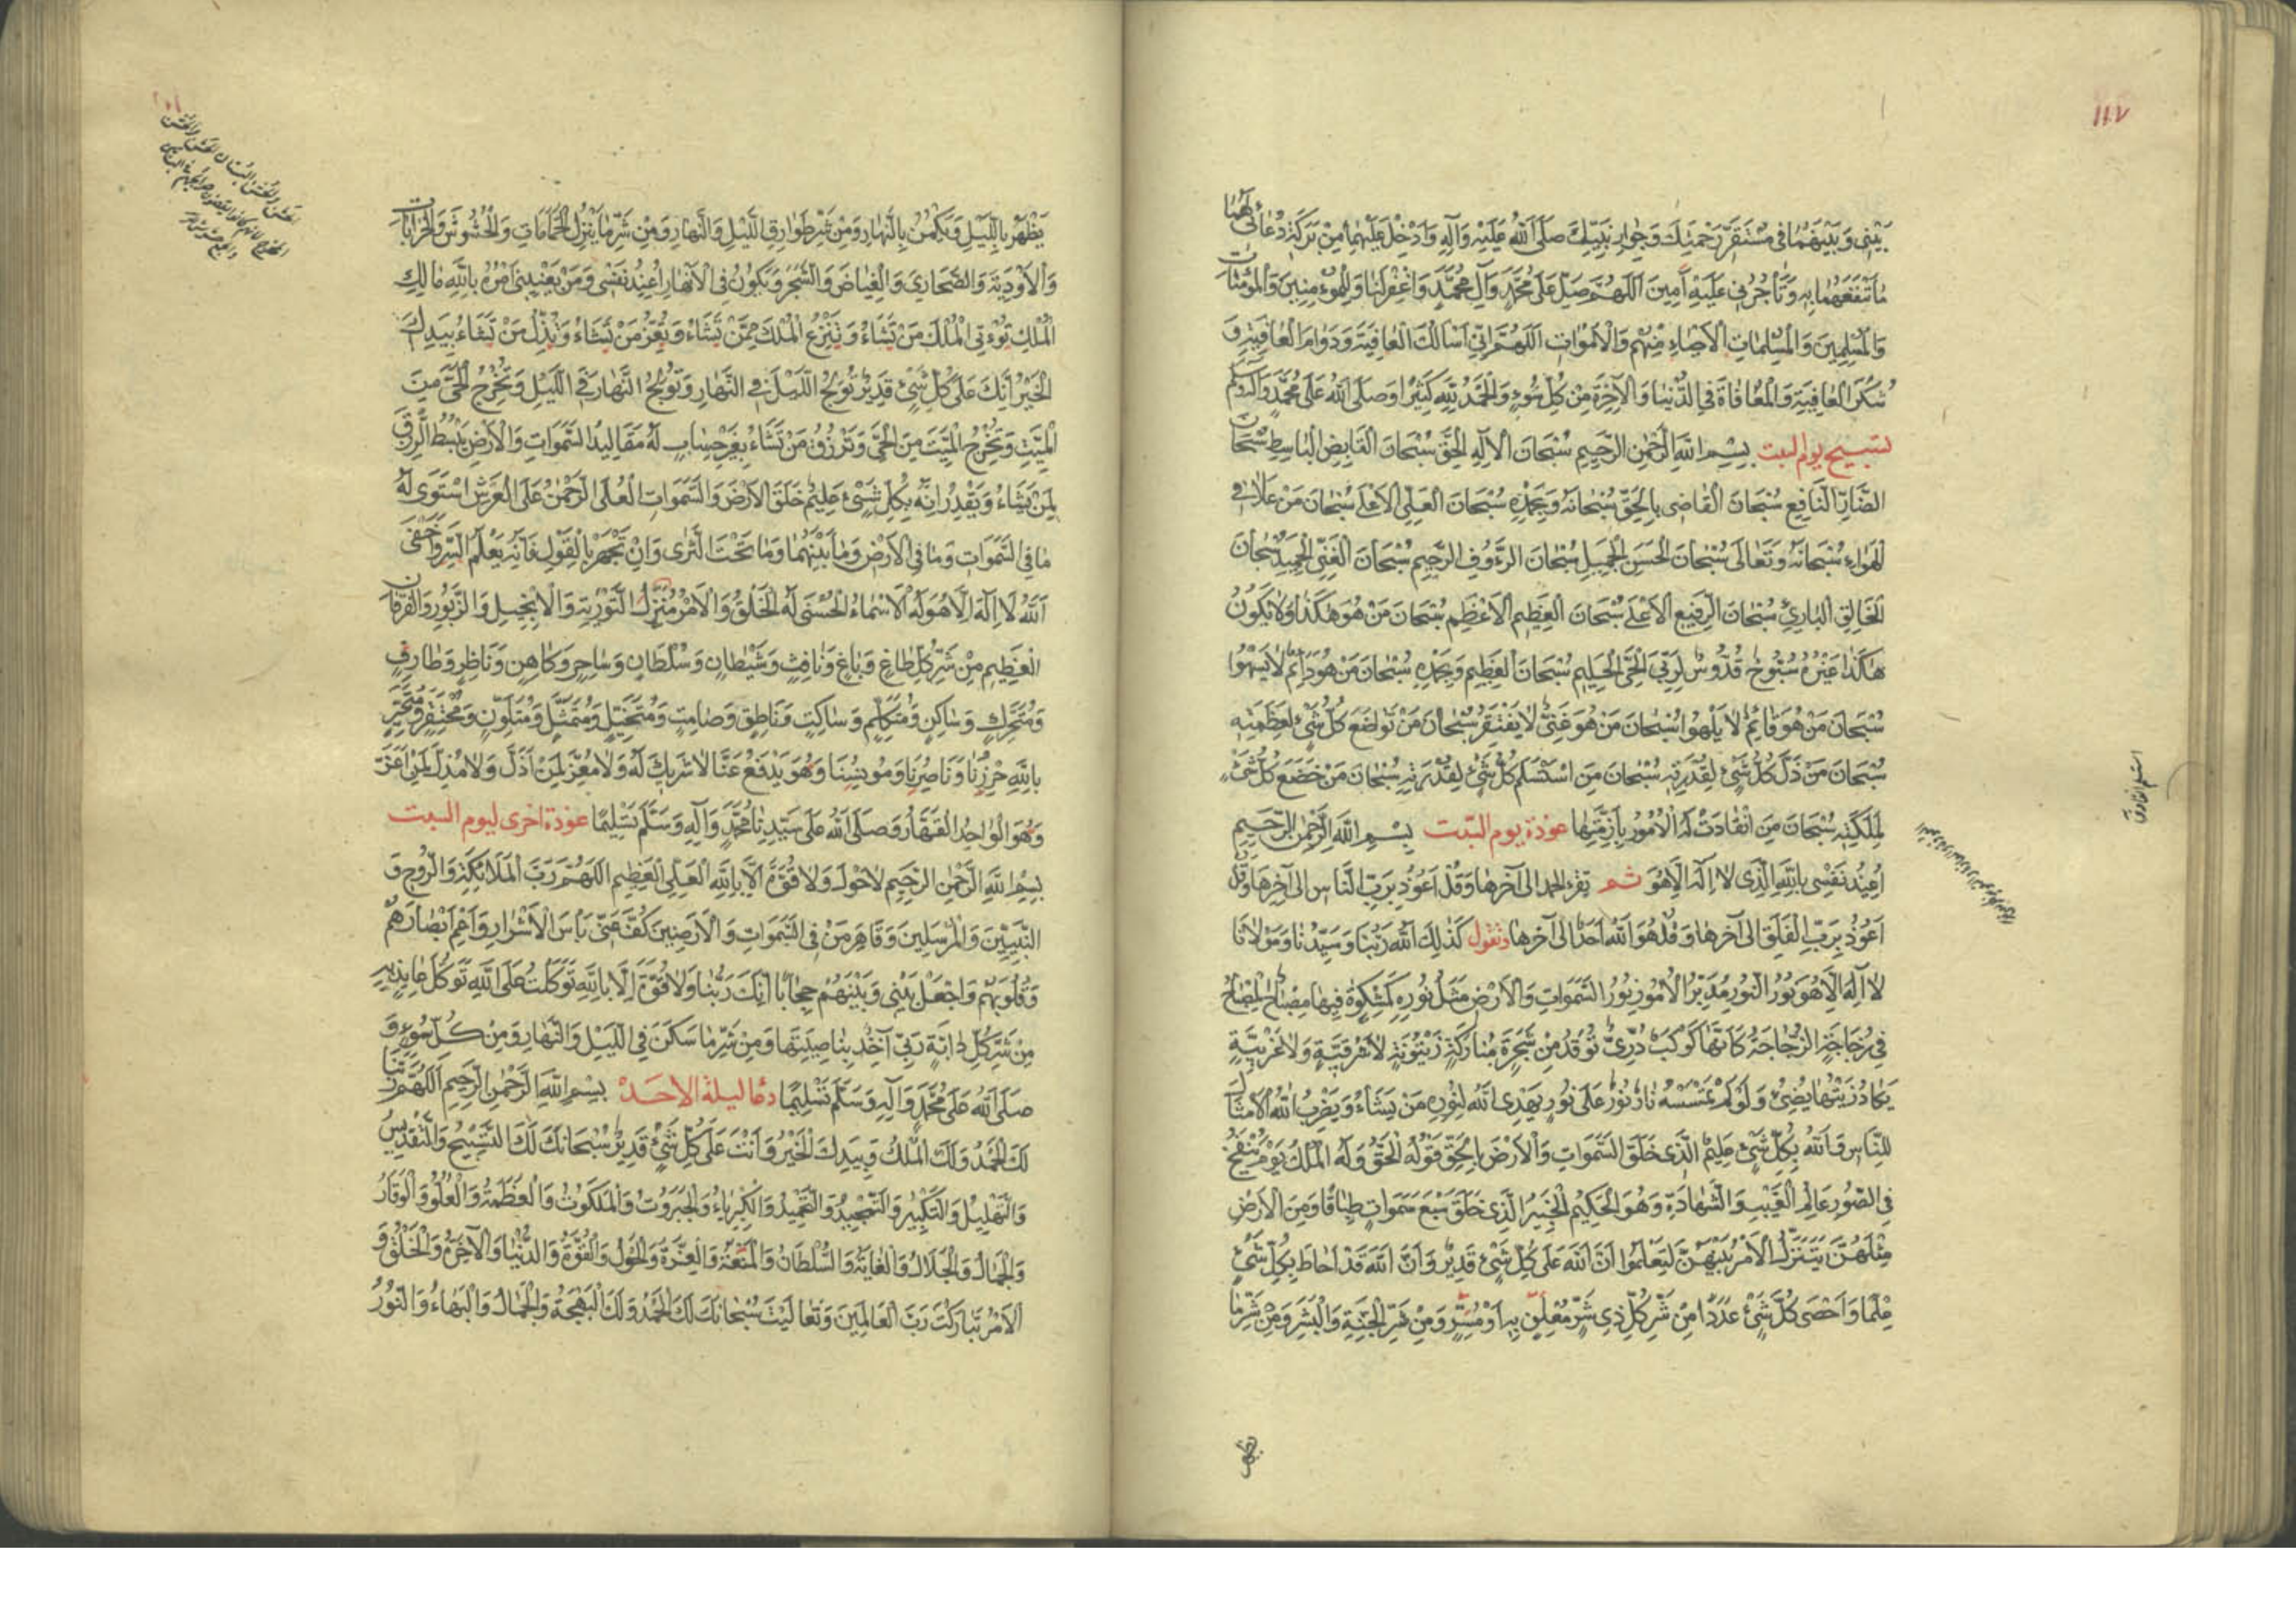 ١١٧
بَيْنِي وَبَيْنَهُمَا فِي مُسْتَقَرِّ رَحْمَتِكَ وَجِوَارِ نَبِيِّكَ صَلَّى اللهُ عَلَيْهِ وَآلِهِ وَاَدْخِلْ عَلَيْهِمَا مِنْ بَرَكَةِ دُعَائِي لَهُمَا
مَا تَنْفَعُهُمَا بِهِ وَتَأْجُرُنِي عَلَيْهِ آمِينَ اَللّهُمَّ صَلِّ عَلَى مُحَمَّدٍ وَآلِ مُحَمَّدٍ وَاغْفِرْ لَنَا وَلِلْمُؤْمِنِينَ وَالْمُؤْمِنَاتِ
وَالْمُسْلِمِينَ وَالْمُسْلِمَاتِ الْأَحْيَاءِ مِنْهُمْ وَالْأَمْوَاتِ اَللّهُمَّ اِنِّي اَسْأَلُكَ الْعَافِيَةَ وَدَوَامَ الْعَافِيَةِ وَ
شُكْرَ الْعَافِيَةِ وَالْمُعَافَاةَ فِي الدُّنْيَا وَالْآخِرَةِ مِنْ كُلِّ سُوءٍ وَالْحَمْدُ لِلّهِ كَثِيرًا وَصَلَّى اللهُ عَلَى مُحَمَّدٍ وَآلِهِ وَسَلَّمَ
تسبيح يوم السبت بِسْمِ اللهِ الرَّحْمنِ الرَّحِيمِ سُبْحَانَ الْاِلهِ الْحَقِّ سُبْحَانَ الْقَابِضِ الْبَاسِطِ سُبْحَانَ
الضَّارِّ النَّافِعِ سُبْحَانَ الْقَاضِي بِالْحَقِّ سُبْحَانَهُ وَبِحَمْدِهِ سُبْحَانَ الْعَلِيِّ الْاَعْلَى سُبْحَانَ مَنْ عَلَا فِي
الْهَوَاءِ سُبْحَانَهُ وَتَعَالَى سُبْحَانَ الْحَسَنِ الْجَمِيلِ سُبْحَانَ الرَّءُوفِ الرَّحِيمِ سُبْحَانَ الْغَنِيِّ الْحَمِيدِ سُبْحَانَ
الْخَالِقِ الْبَارِئِ سُبْحَانَ الرَّفِيعِ الْاَعْلَى سُبْحَانَ الْعَظِيمِ الْاَعْظَمِ سُبْحَانَ مَنْ هُوَ هَكَذَا وَلَا يَكُونُ
هَكَذَا غَيْرُهُ سُبُّوحٌ قُدُّوسٌ لِرَبِّيَ الْحَيِّ الْحَلِيمِ سُبْحَانَ الْعَظِيمِ وَبِحَمْدِهِ سُبْحَانَ مَنْ هُوَ دَائِمٌ لَا يَسْهُوا
سُبْحَانَ مَنْ هُوَ قَائِمٌ لَا يَلْهُوا سُبْحَانَ مَنْ هُوَ غَنِيٌّ لَا يَفْتَقِرُ سُبْحَانَ مَنْ تَوَاضَعَ كُلُّ شَيْءٍ لِعَظَمَتِهِ
سُبْحَانَ مَنْ ذَلَّ كُلُّ شَيْءٍ لِقُدْرَتِهِ سُبْحَانَ مَنِ اسْتَسْلَمَ كُلُّ شَيْءٍ لِقُدْرَتِهِ سُبْحَانَ مَنْ خَضَعَ كُلُّ شَيْءٍ
لِمَلَكَتِهِ سُبْحَانَ مَنِ انْقَادَتْ لَهُ الْاُمُورُ بِاَزِمَّتِهَا عوذة يوم السبت بِسْمِ اللهِ الرَّحْمنِ الرَّحِيمِ
اُعِيذُ نَفْسِي بِاللهِ الَّذِي لَا اِلهَ اِلَّا هُوَ ثم يقرء الحمد الى آخرها وَقُلْ اَعُوذُ بِرَبِّ النَّاسِ الى آخِرِهَا وَقُلْ
اَعُوذُ بِرَبِّ الْفَلَقِ الى آخرها وَقُلْ هُوَ اللهُ اَحَدٌ الى آخرها وتقول كَذَلِكَ اللهُ رَبُّنَا وَسَيِّدُنَا وَمَوْلَانَا
لَا اِلهَ اِلَّا هُوَ نُورُ النُّورِ مُدَبِّرُ الْاُمُورِ نُورُ السَّمَوَاتِ وَالْاَرْضِ مَثَلُ نُورِهِ كَمِشْكَوةٍ فِيهَا مِصْبَاحٌ الْمِصْبَاحُ
فِي زُجَاجَةٍ الزُّجَاجَةُ كَاَنَّهَا كَوْكَبٌ دُرِّيٌّ تُوقَدُ مِنْ شَجَرَةٍ مُبَارَكَةٍ زَيْتُونَةٍ لَا شَرْقِيَّةٍ وَلَا غَرْبِيَّةٍ
يَكَادُ زَيْتُهَا يُضِيءُ وَلَوْ لَمْ تَمْسَسْهُ نَارٌ نُورٌ عَلَى نُورٍ يَهْدِي اللهُ لِنُورِهِ مَنْ يَشَاءُ وَيَضْرِبُ اللهُ الْاَمْثَالَ
لِلنَّاسِ وَاللهُ بِكُلِّ شَيْءٍ عَلِيمٌ الَّذِي خَلَقَ السَّمَوَاتِ وَالْاَرْضَ بِالْحَقِّ قَوْلُهُ الْحَقُّ وَلَهُ الْمُلْكُ يَوْمَ يُنْفَخُ
فِي الصُّورِ عَالِمُ الْغَيْبِ وَالشَّهَادَةِ وَهُوَ الْحَكِيمُ الْخَبِيرُ الَّذِي خَلَقَ سَبْعَ سَمَوَاتٍ طِبَاقًا وَمِنَ الْاَرْضِ
مِثْلَهُنَّ يَتَنَزَّلُ الْاَمْرُ بَيْنَهُنَّ لِتَعْلَمُوا اَنَّ اللهَ عَلَى كُلِّ شَيْءٍ قَدِيرٌ وَاَنَّ اللهَ قَدْ اَحَاطَ بِكُلِّ شَيْءٍ
عِلْمًا وَاَحْصَى كُلَّ شَيْءٍ عَدَدًا مِنْ شَرِّ كُلِّ ذِي شَرٍّ مُعْلِنٍ بِهِ اَوْ مُسِرٍّ وَمِنْ شَرِّ الْجِنَّةِ وَالْبَشَرِ وَمِنْ شَرِّ مَا
يَظْهَرُ بِاللَّيْلِ وَيَكْمُنُ بِالنَّهَارِ وَمِنْ شَرِّ طَوَارِقِ اللَّيْلِ وَالنَّهَارِ وَمِنْ شَرِّ مَا يَنْزِلُ الْحَمَّامَاتِ وَالْحُشُوشَ وَالْخَرَابَاتِ
وَالْاَوْدِيَةَ وَالصَّحَارِيَ وَالْغِيَاضَ وَالشَّجَرَ وَيَكُونُ فِي الْاَنْهَارِ اُعِيذُ نَفْسِي وَمَنْ يَعْنِينِي اَمْرُهُ بِاللهِ مَالِكِ
الْمُلْكِ تُؤْتِي الْمُلْكَ مَنْ تَشَاءُ وَتَنْزِعُ الْمُلْكَ مِمَّنْ تَشَاءُ وَتُعِزُّ مَنْ تَشَاءُ وَتُذِلُّ مَنْ تَشَاءُ بِيَدِكَ
الْخَيْرُ اِنَّكَ عَلَى كُلِّ شَيْءٍ قَدِيرٌ تُولِجُ اللَّيْلَ فِي النَّهَارِ وَتُولِجُ النَّهَارَ فِي اللَّيْلِ وَتُخْرِجُ الْحَيَّ مِنَ
الْمَيِّتِ وَتُخْرِجُ الْمَيِّتَ مِنَ الْحَيِّ وَتَرْزُقُ مَنْ تَشَاءُ بِغَيْرِ حِسَابٍ لَهُ مَقَالِيدُ السَّمَوَاتِ وَالْاَرْضِ يَبْسُطُ الرِّزْقَ
لِمَنْ يَشَاءُ وَيَقْدِرُ اِنَّهُ بِكُلِّ شَيْءٍ عَلِيمٌ خَلَقَ الْاَرْضَ وَالسَّمَوَاتِ الْعُلَى الرَّحْمنُ عَلَى الْعَرْشِ اسْتَوَى لَهُ
مَا فِي السَّمَوَاتِ وَمَا فِي الْاَرْضِ وَمَا بَيْنَهُمَا وَمَا تَحْتَ الثَّرَى وَاِنْ تَجْهَرْ بِالْقَوْلِ فَاِنَّهُ يَعْلَمُ السِّرَّ وَاَخْفَى
اَللهُ لَا اِلهَ اِلَّا هُوَ لَهُ الْاَسْمَاءُ الْحُسْنَى لَهُ الْخَلْقُ وَالْاَمْرُ مُنْزِلُ التَّوْرِيةِ وَالْاِنْجِيلِ وَالزَّبُورِ وَالْفُرْقَانِ
الْعَظِيمِ مِنْ شَرِّ كُلِّ طَاغٍ وَبَاغٍ وَنَافِثٍ وَشَيْطَانٍ وَسُلْطَانٍ وَسَاحِرٍ وَكَاهِنٍ وَنَاظِرٍ وَطَارِقٍ
وَمُتَحَرِّكٍ وَسَاكِنٍ وَمُتَكَلِّمٍ وَسَاكِتٍ وَنَاطِقٍ وَصَامِتٍ وَمُتَخَيِّلٍ وَمُتَمَثِّلٍ وَمُتَلَوِّنٍ وَمُحْتَقِرٍ وَمُتَجَبِّرٍ
بِاللهِ حِرْزِنَا وَنَاصِرِنَا وَمُونِسِنَا وَهُوَ يَدْفَعُ عَنَّا لَا شَرِيكَ لَهُ وَلَا مُعِزَّ لِمَنْ اَذَلَّ وَلَا مُذِلَّ لِمَنْ اَعَزَّ
وَهُوَ الْوَاحِدُ الْقَهَّارُ وَصَلَّى اللهُ عَلَى سَيِّدِنَا مُحَمَّدٍ وَآلِهِ وَسَلَّمَ تَسْلِيمًا عوذة اخرى ليوم السبت
بِسْمِ اللهِ الرَّحْمنِ الرَّحِيمِ لَا حَوْلَ وَلَا قُوَّةَ اِلَّا بِاللهِ الْعَلِيِّ الْعَظِيمِ اَللّهُمَّ رَبَّ الْمَلَائِكَةِ وَالرُّوحِ وَ
النَّبِيِّينَ وَالْمُرْسَلِينَ وَقَاهِرَ مَنْ فِي السَّمَوَاتِ وَالْاَرَضِينَ كُفَّ عَنِّي بَأْسَ الْاَشْرَارِ وَاَعْمِ اَبْصَارَهُمْ
وَقُلُوبَهُمْ وَاجْعَلْ بَيْنِي وَبَيْنَهُمْ حِجَابًا اِنَّكَ رَبُّنَا وَلَا قُوَّةَ اِلَّا بِاللهِ تَوَكَّلْتُ عَلَى اللهِ تَوَكُّلَ عَائِذٍ بِهِ
مِنْ شَرِّ كُلِّ دَابَّةٍ رَبِّي آخِذٌ بِنَاصِيَتِهَا وَمِنْ شَرِّ مَا سَكَنَ فِي اللَّيْلِ وَالنَّهَارِ وَمِنْ كُلِّ سُوءٍ وَ
صَلَّى اللهُ عَلَى مُحَمَّدٍ وَآلِهِ وَسَلَّمَ تَسْلِيمًا دعا ليلة الاحد بِسْمِ اللهِ الرَّحْمنِ الرَّحِيمِ اَللّهُمَّ رَبَّنَا
لَكَ الْحَمْدُ وَلَكَ الْمُلْكُ وَبِيَدِكَ الْخَيْرُ وَاَنْتَ عَلَى كُلِّ شَيْءٍ قَدِيرٌ سُبْحَانَكَ لَكَ التَّسْبِيحُ وَالتَّقْدِيسُ
وَالتَّهْلِيلُ وَالتَّكْبِيرُ وَالتَّمْجِيدُ وَالتَّحْمِيدُ وَالْكِبْرِيَاءُ وَالْجَبَرُوتُ وَالْمَلَكُوتُ وَالْعَظَمَةُ وَالْعُلُوُّ وَالْوَقَارُ
وَالْجَمَالُ وَالْجَلَالُ وَالْغَايَةُ وَالسُّلْطَانُ وَالْمَنَعَةُ وَالْعِزَّةُ وَالْحَوْلُ وَالْقُوَّةُ وَالدُّنْيَا وَالْآخِرَةُ وَالْخَلْقُ وَ
الْاَمْرُ تَبَارَكْتَ رَبَّ الْعَالَمِينَ وَتَعَالَيْتَ سُبْحَانَكَ لَكَ الْحَمْدُ وَلَكَ الْبَهْجَةُ وَالْجَمَالُ وَالْبَهَاءُ وَالنُّورُ